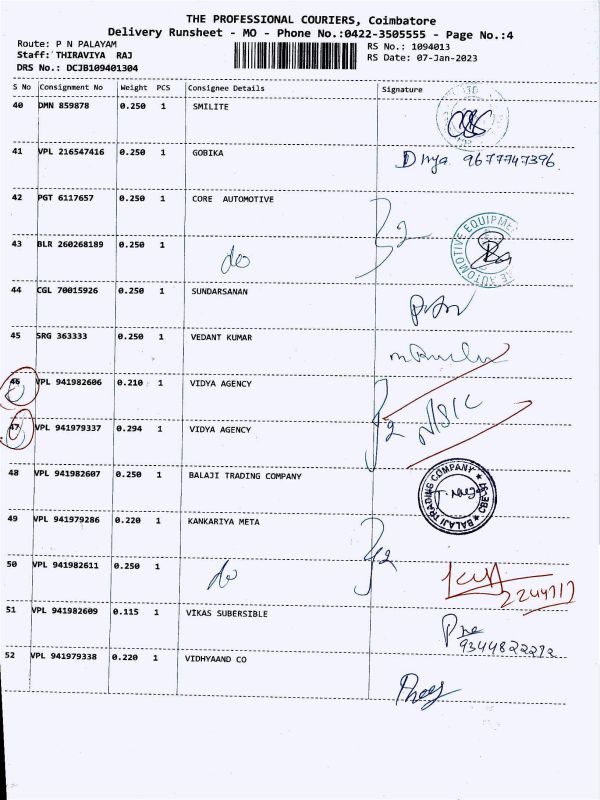 THE PROFESSIONAL COURIERS, Coimbatore
Delivery Runsheet - MO - Phone No.:0422-3505555 - Page No.:4
Route: P N PALAYAM
RS No.: 1094013
Staff: THIRAVIYA RAJ
RS Date: 07-Jan-2023
DRS No.: DCJB109401304
S No Consignment No Weight PCS Consignee Details Signature
40 DMN 859878 0.250 1 SMILITE
41 VPL 216547416 0.250 1 GOBIKA
9677747396
42 PGT 6117657 0.250 1 CORE AUTOMOTIVE
2
AUTOMOTIVE EQUIPME
43 BLR 260268189 0.250 1
do
44 CGL 70015926 0.250 1 SUNDARSANAN
45 SRG 363333 0.250 1 VEDANT KUMAR
46 VPL 941982606 0.210 1 VIDYA AGENCY
N/S/C
47 VPL 941979337 0.294 1 VIDYA AGENCY
2
48 VPL 941982607 0.250 1 BALAJI TRADING COMPANY
BALAJI TRADING COMPANY ★ CBE
49 VPL 941979286 0.220 1 KANKARIYA META
2
50 VPL 941982611 0.250 1
do
51 VPL 941982609 0.115 1 VIKAS SUBERSIBLE
9344822212
52 VPL 941979338 0.220 1 VIDHYAAND CO